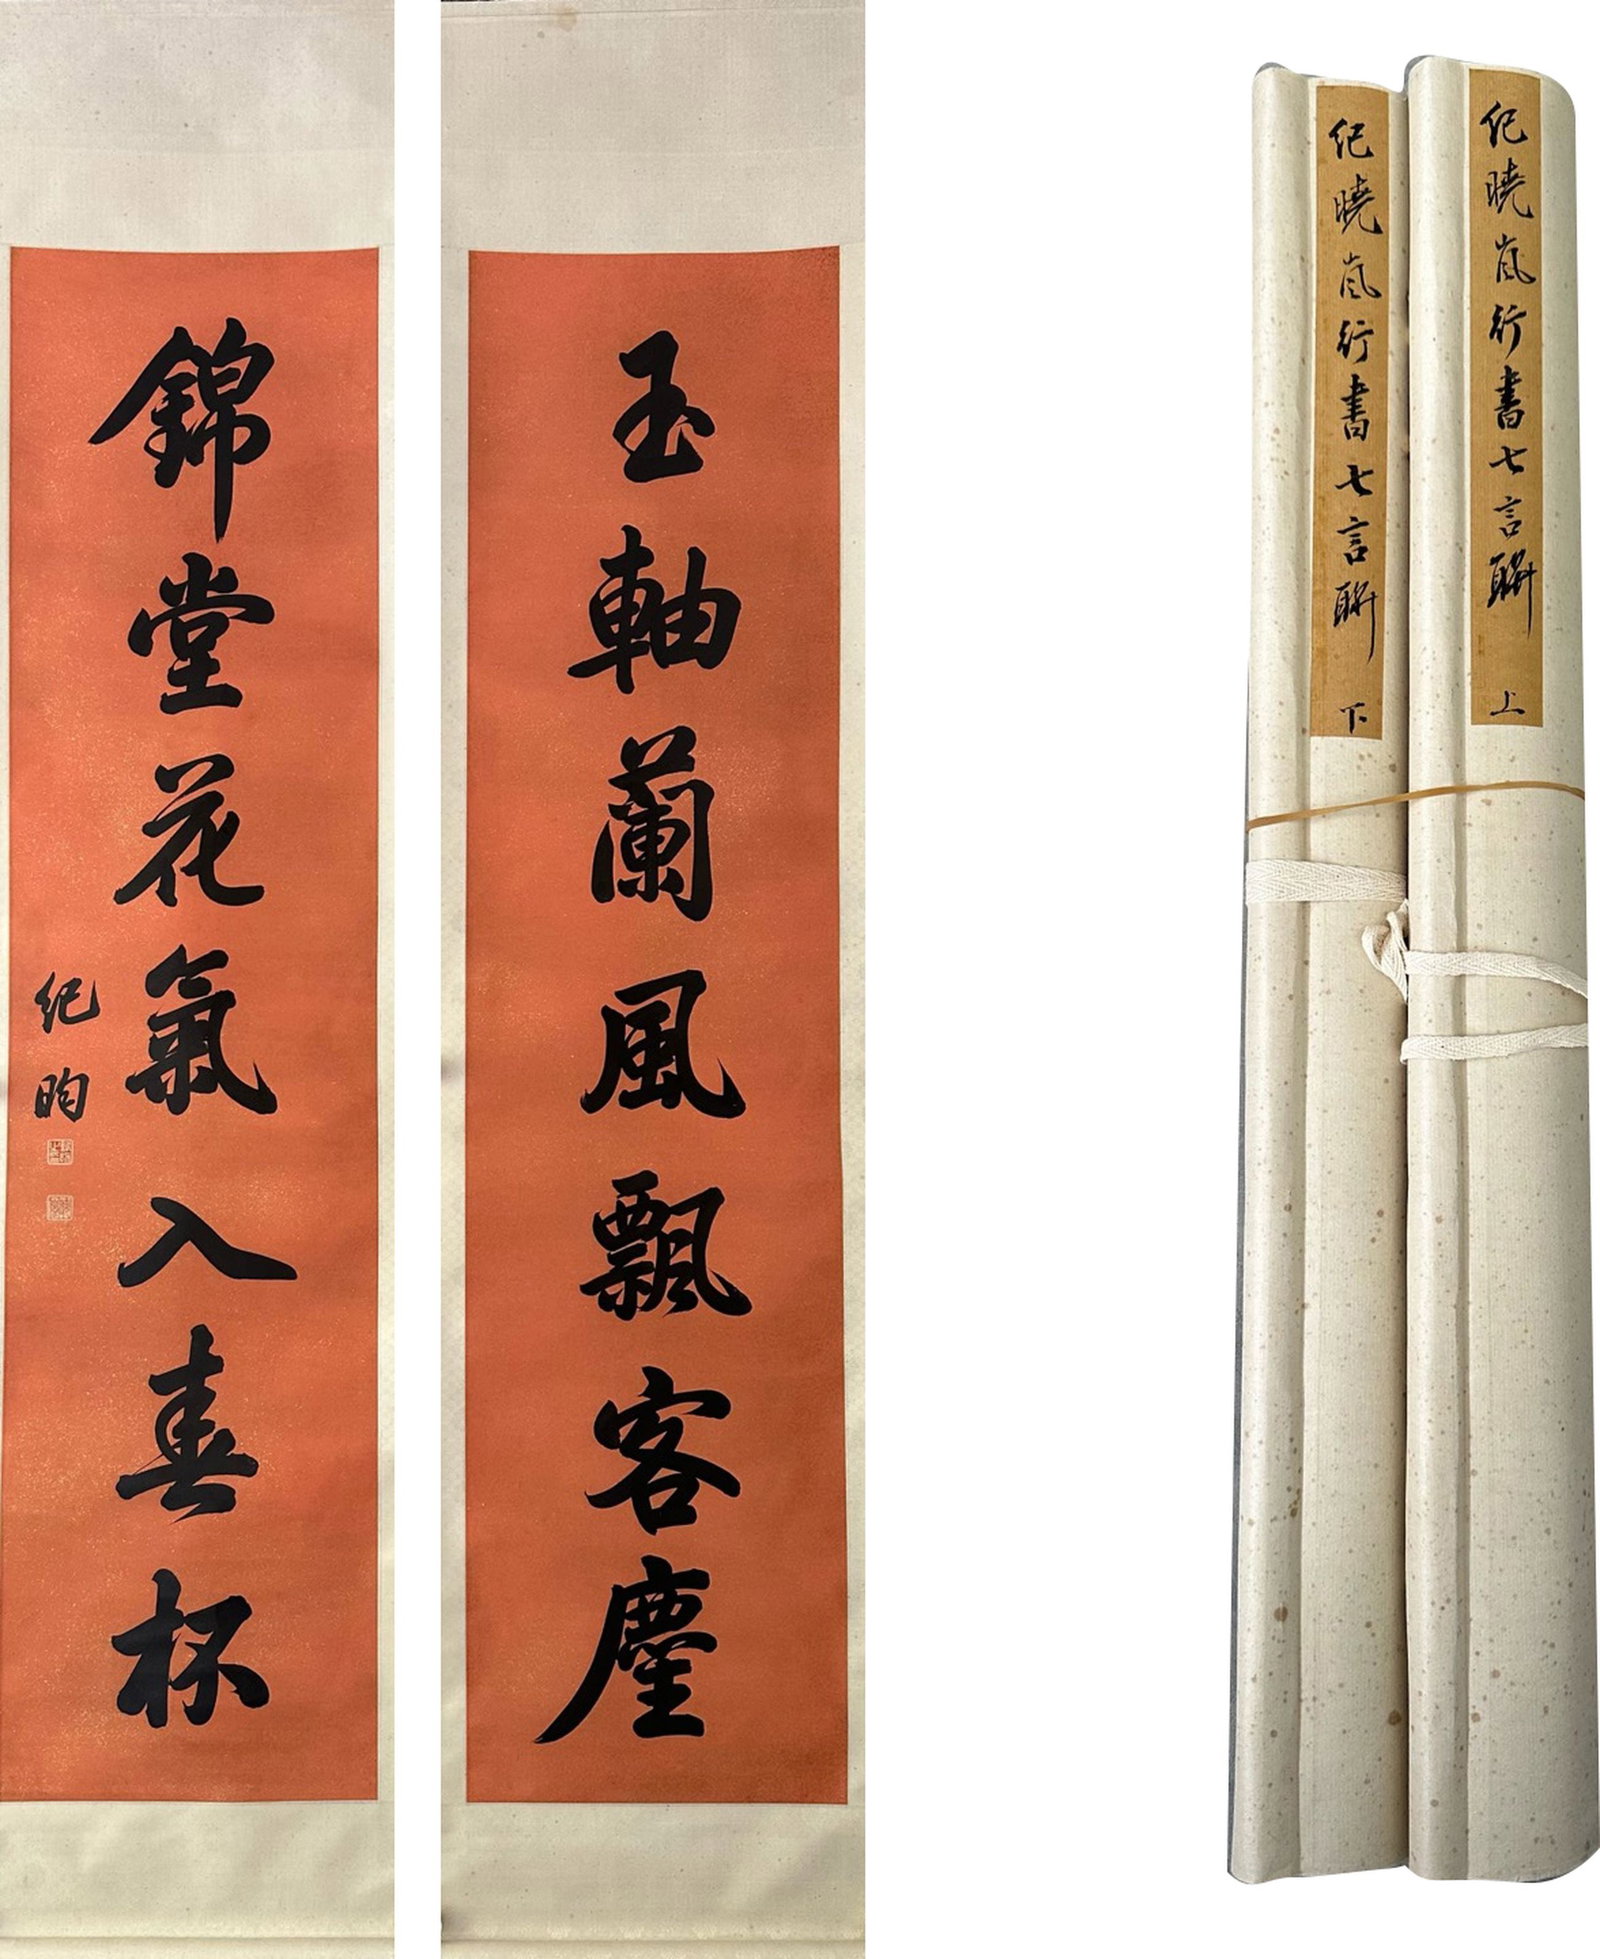 玉軸蘭風飄客塵
錦堂花氣入春杯
紀昀
紀曉嵐行書七言聯 上
紀曉嵐行書七言聯 下